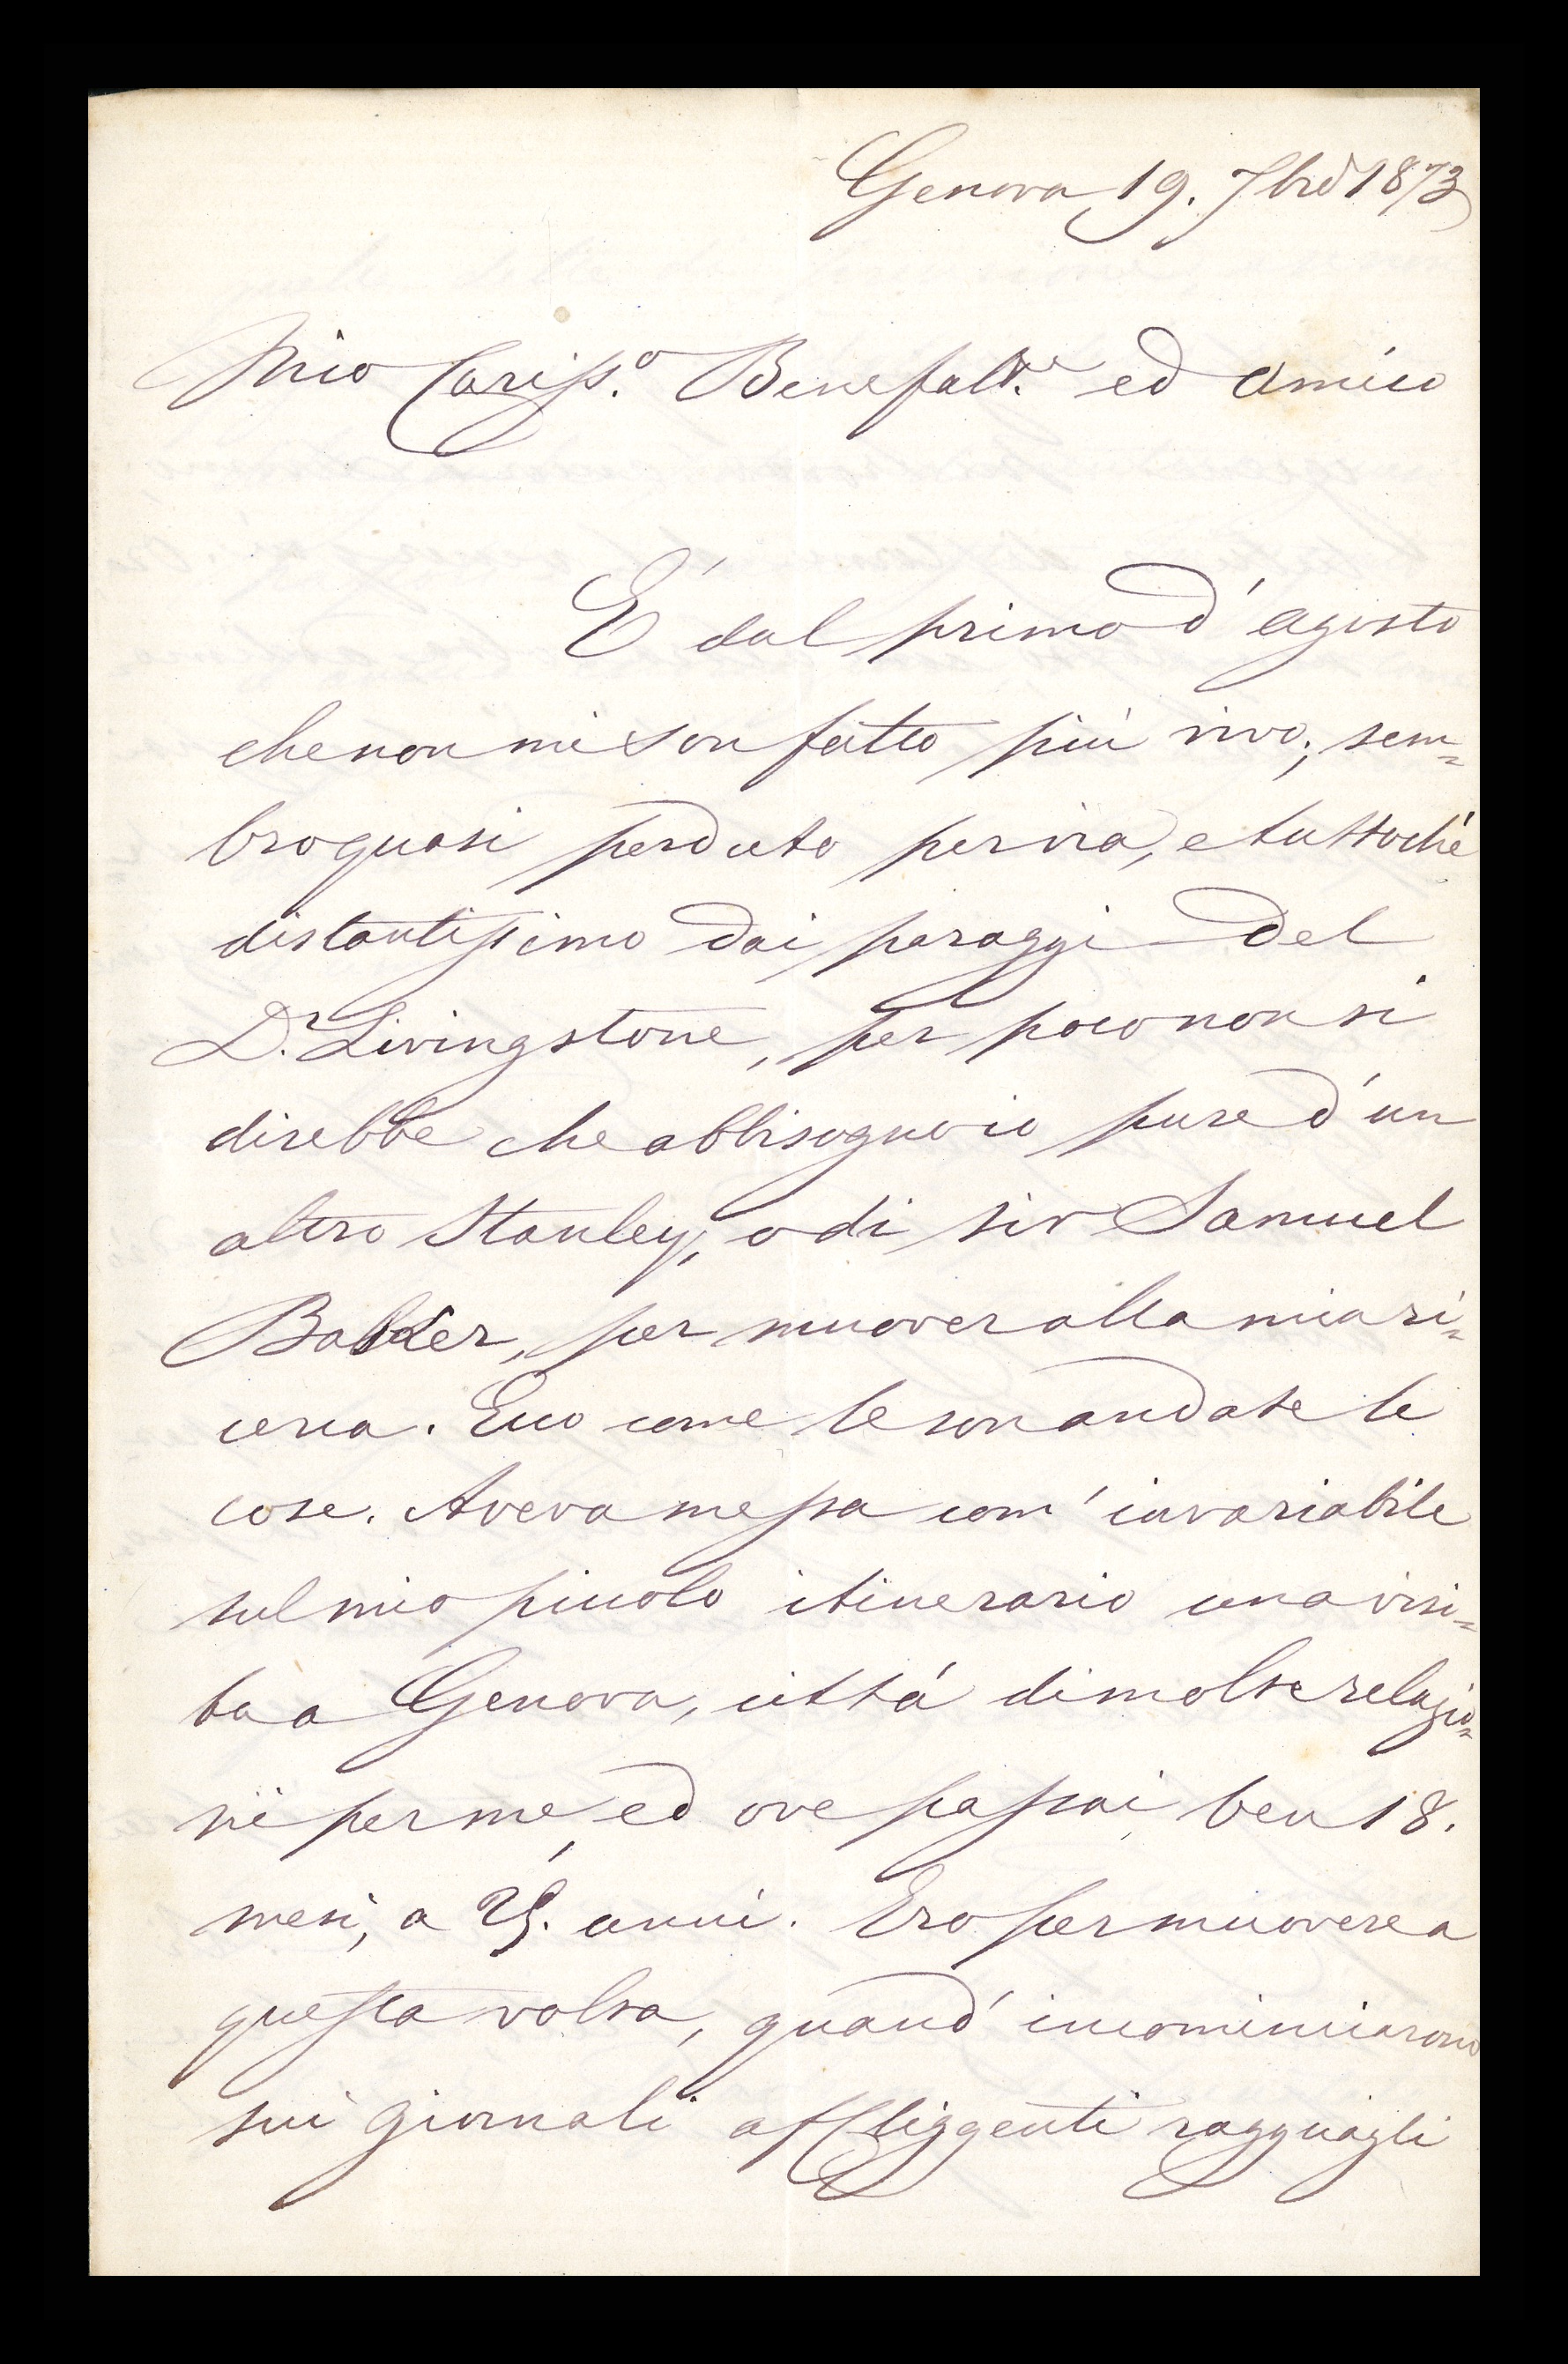 Genova, 19. 7bre 1873
Mio Cariss.o Benefatt.e ed amico
E' dal primo d'agosto
che non mi son fatto più vivo; sem=
bro quasi perduto per via, e tuttochè
distantissimo dai paraggi del
D.r Livingstone, per poco non si
direbbe che abbisogno io pure d'un
altro Stanley, o di sir Samuel
Baker, per muover alla mia ri=
cerca. Ecco come le son andate le
cose. Aveva messa com' invariabile
sul mio piccolo itinerario una visi=
ta a Genova, città di molte relazio=
ni per me, ed ove passai ben 18.
mesi, a anni. Ero per muovere a
questa volta, quand' incominciarono
sui giornali affliggenti ragguagli